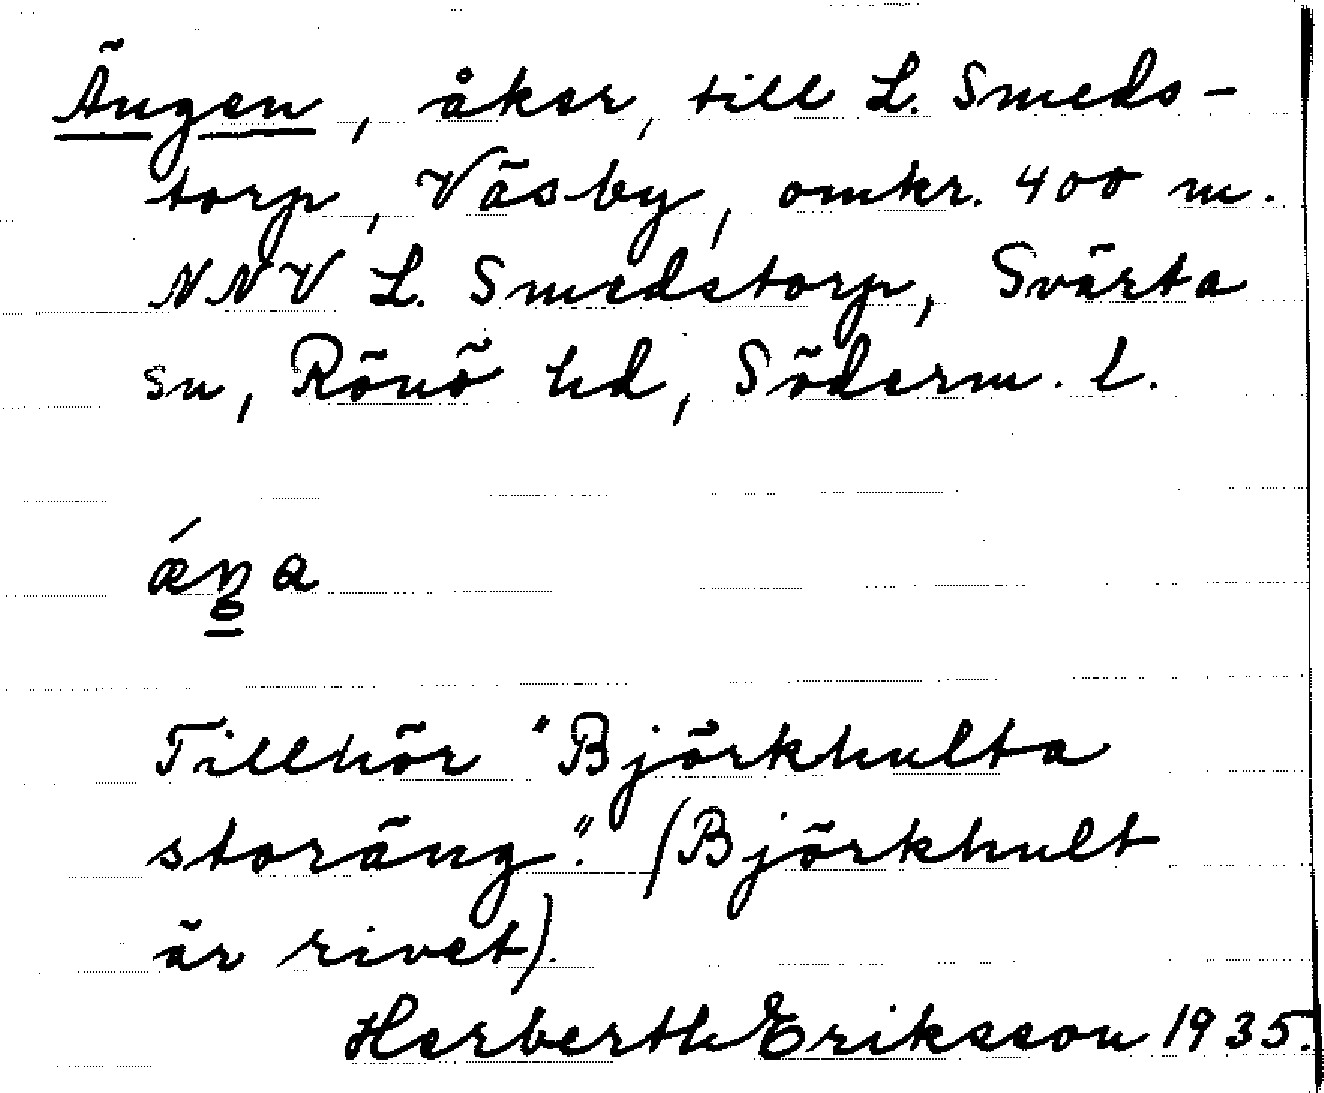 Ängen, åker, till L. Smeds-
torp, Väsby, omkr. 400 m.
NNV L. Smedstorp, Svärta
sn, Rönö hd, Söderm. l.
Tillhör "Björkhulta
storäng". (Björkhult
är rivet).
Herberth Eriksson 1935.